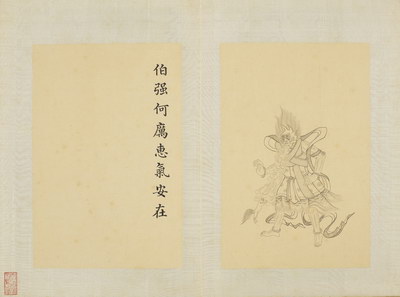 伯强何厲惠氣安在